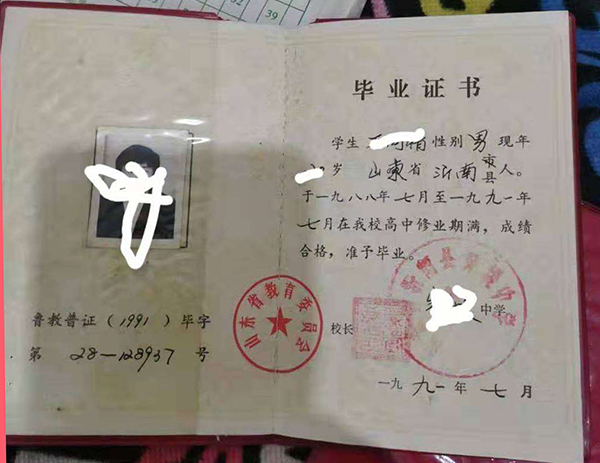 32
39
鲁教普证(1991)毕字
第 28-128937 号
山东省教育委员会
毕业证书
学生 性别 男 现年
岁 山东省 沂南 市县 人。
于一九八八年七月至一九九一年
七月在我校高中修业期满,成绩
合格,准予毕业。
中学
校长
一九九一年七月